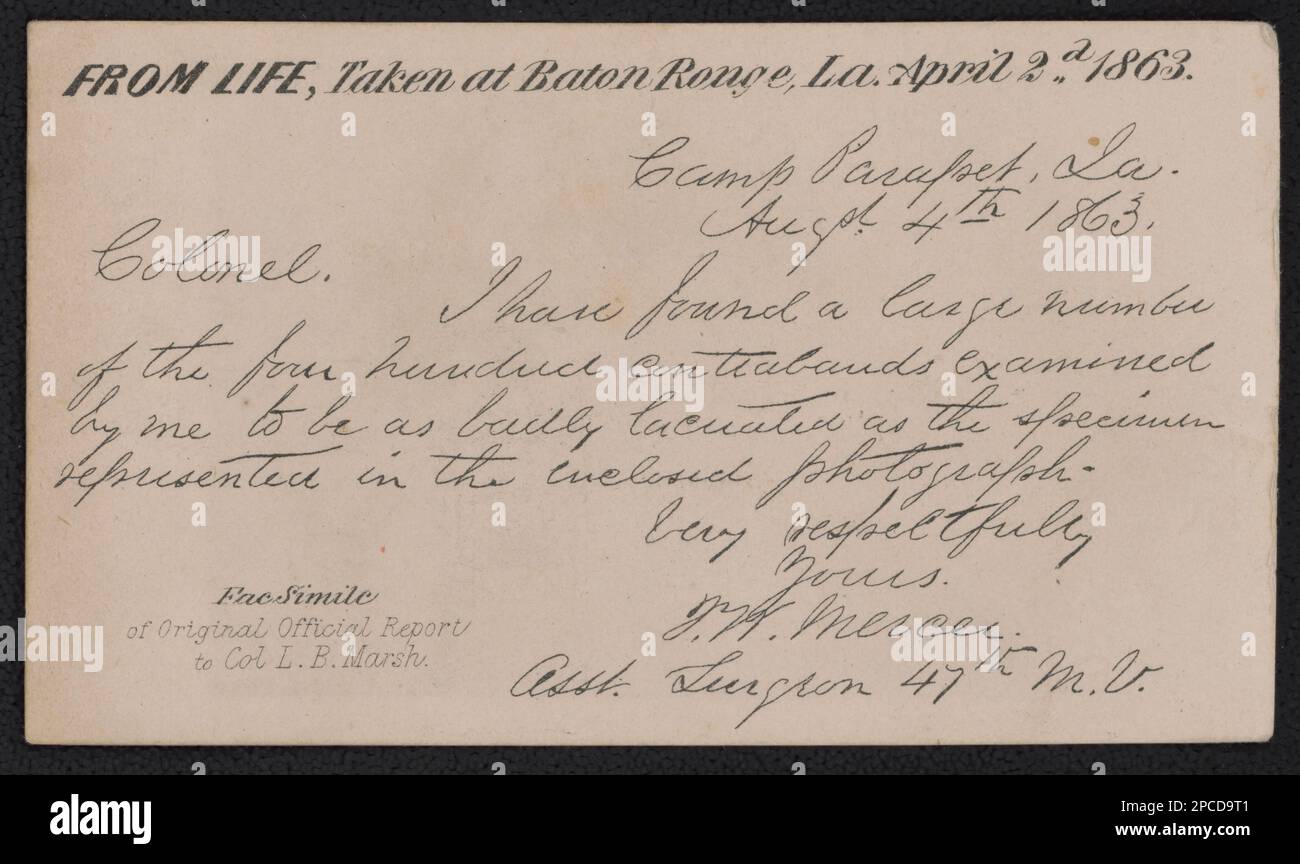 FROM LIFE, Taken at Baton Rouge, La. April 2.d 1863.
Camp Parapet, La.
Augst. 4th 1863.
Colonel.
I have found a large number
of the four hundred contrabands examined
by me to be as badly lacerated as the specimen
represented in the enclosed photograph-
Very respectfully
Yours.
J.W. Mercer.
Asst. Surgeon 47th M.V.
FacSimile
of Original Official Report
to Col L.B. Marsh.
alamy
alamy
Image ID: 2PCD9T1
www.alamy.com